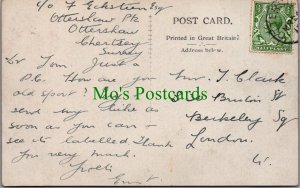 c/o F Eckstein Esq
Ottershaw Pk
Ottershaw
Chertsey
Surrey
POST CARD.
Printed in Great Britain
Address below.
Dr Tom Just a
P.C. How are you
old sport?
send my bike as
soon as you can
see its labelled Thank
you very much.
Ernt.
Mr T. Clark
Bruton St
Berkeley Sq
London.
W.
Mo's Postcards